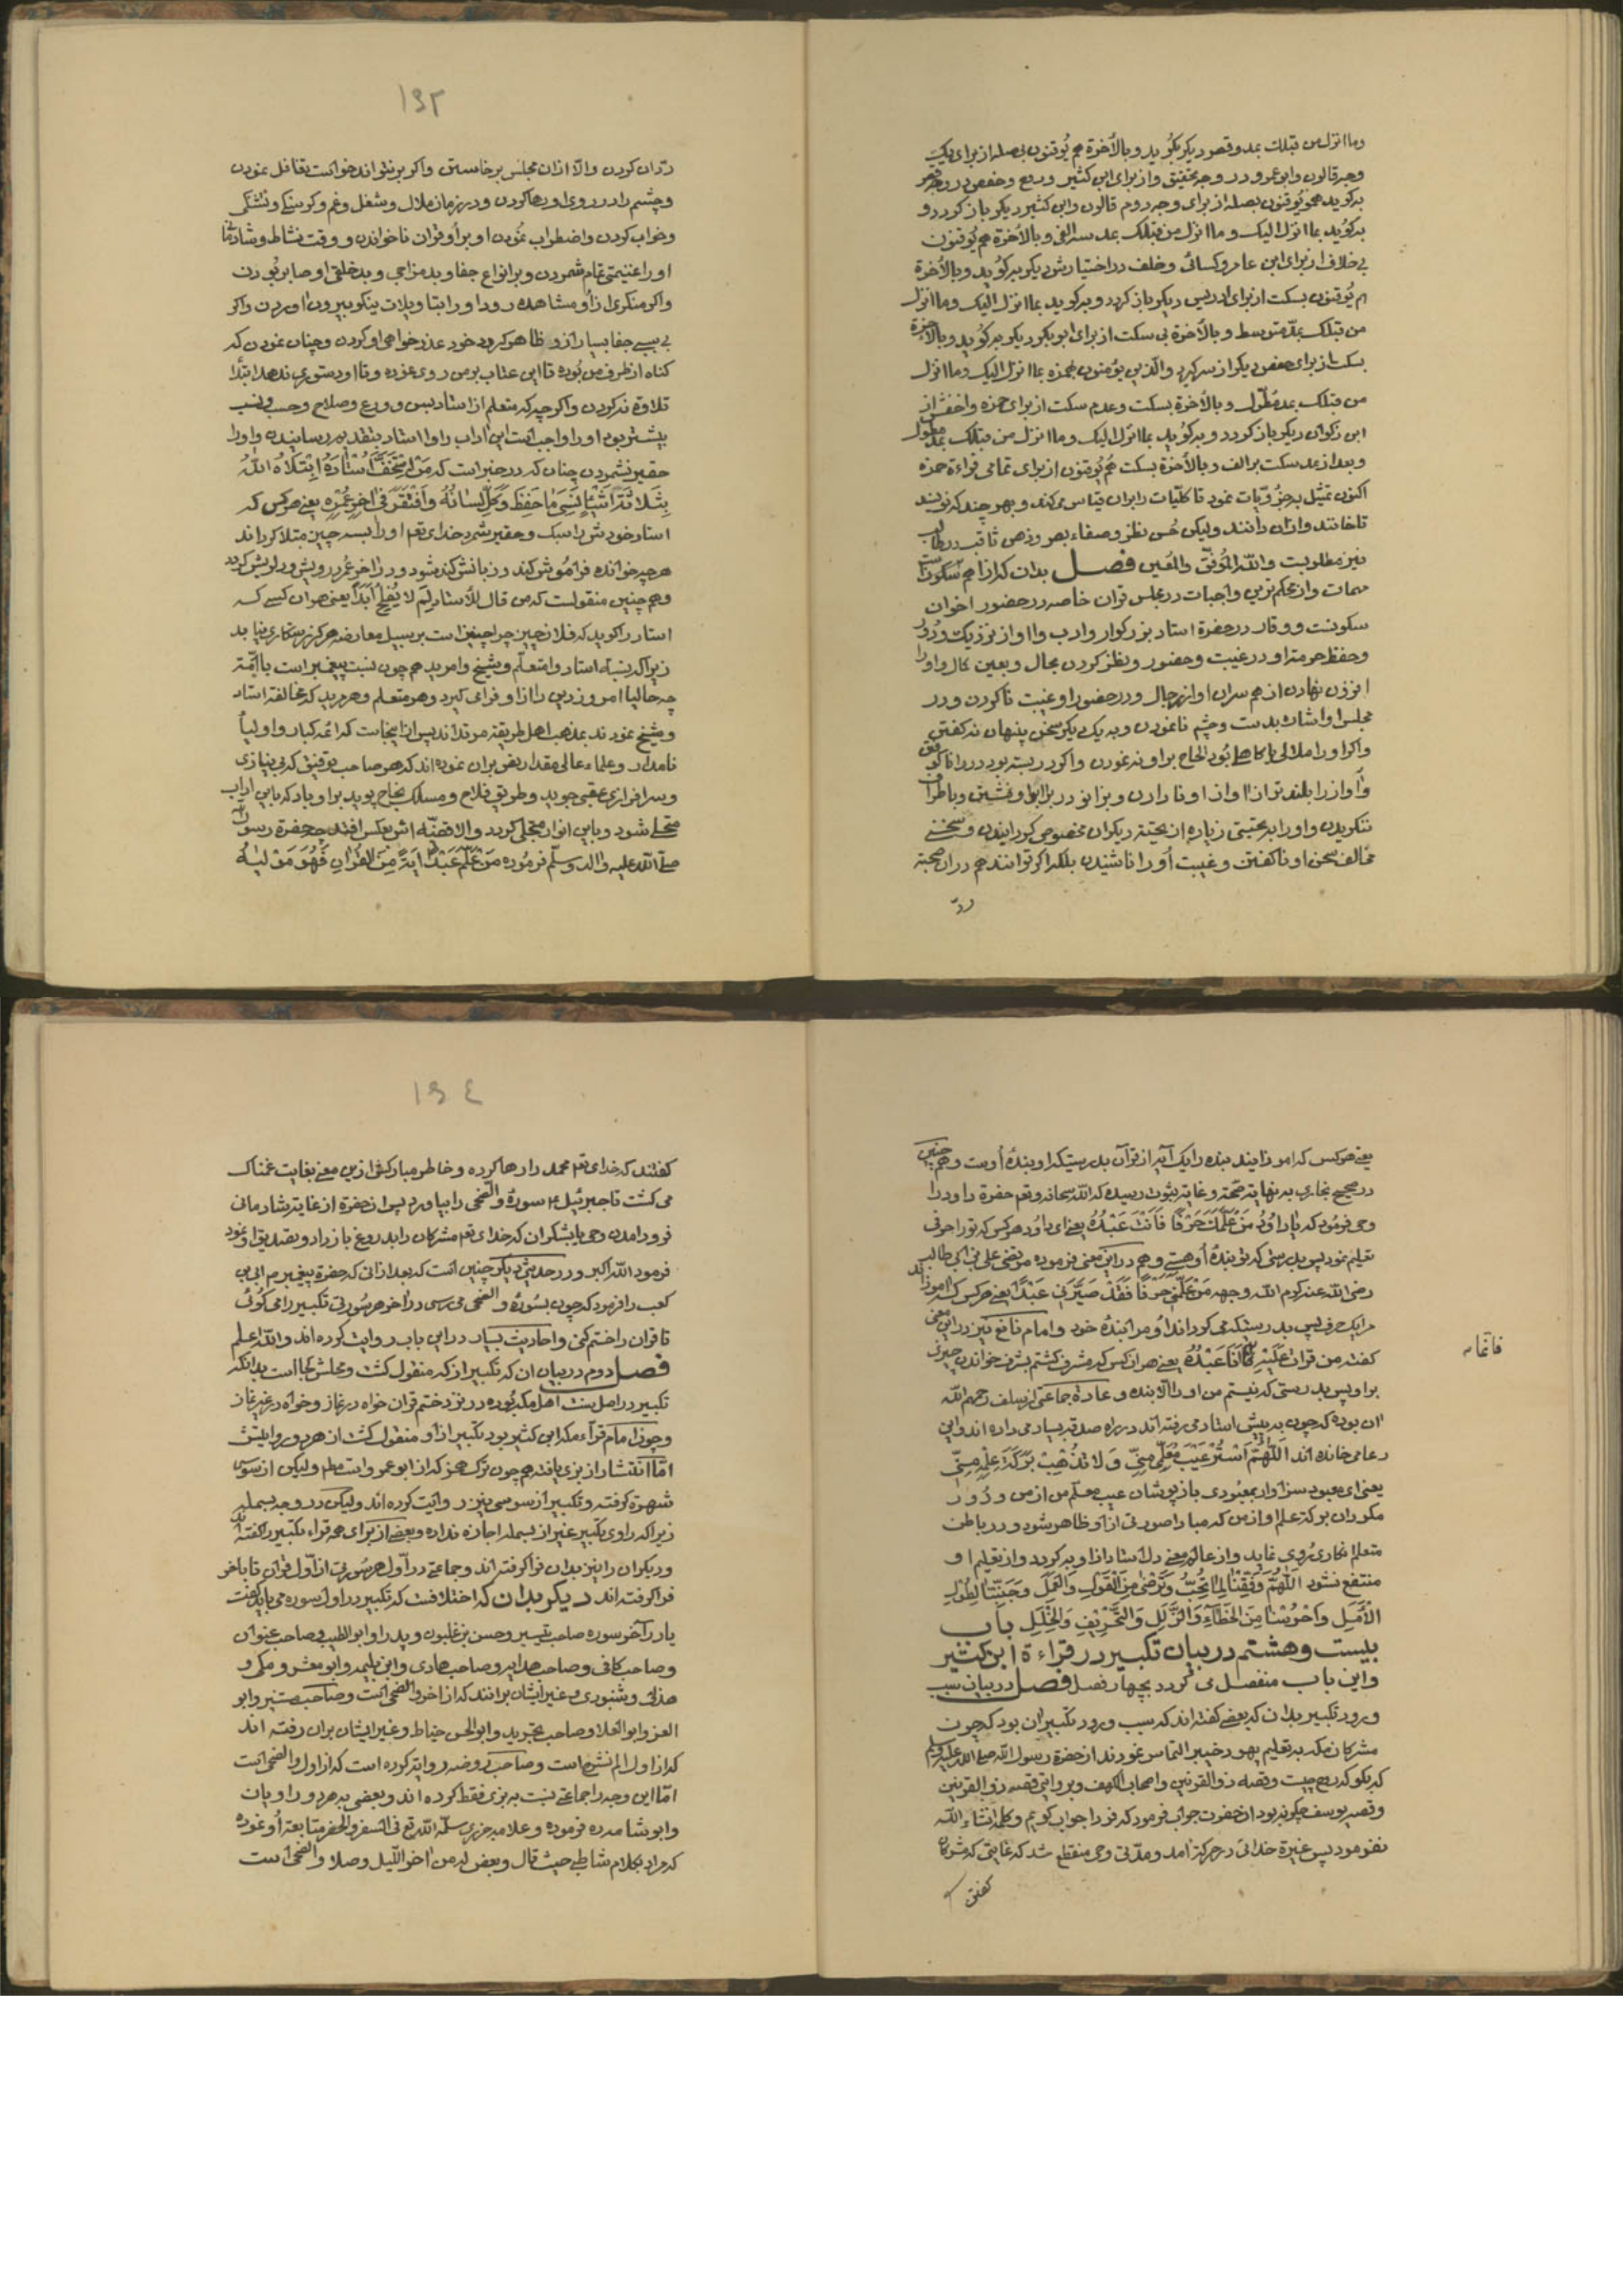 وما انزل من قبلك بمد وقصر دیکر بکوید وبالآخرة هم یُوقنون بصله از برای یک
وجه قالون وابو عمرو در وجه تحقیق واز برای ابن کثیر
بر کوید هم یُوقنون بصله از برای وجه دوم قالون وابن کثیر دیکر باز کردد و
بر کوید بما انزل الیک وما انزل من قبلک بمد سه الفی وبالآخرة هم یُوقنون
بی خلاف از برای ابن عامر وکسائی وخلف در اختیارش دیکر بر کوید وبالآخرة
هم یُوقنون بسکت از برای ادریس دیکر باز کردد وبر کوید بما انزل الیک وما انزل
من قبلک بمدّ متوسط وبالآخرة بی سکت از برای ابو بکر دیکر بر کوید وبالآخرة
بسکت از برای حفص دیکر از سر کیرد والّذین یؤمنون بما انزل الیک وما انزل
من قبلک بمد مطوّل وبالآخرة بسکت وعدم سکت از برای حمزه
ابن ذکوان دیکر باز کردد وبر کوید بما انزل الیک وما انزل من قبلک بمد مطول
وبعد از مد سکت بر الف وبالآخرة بسکت هم یُوقنون از برای تمامی قراءة حمزه
اکنون تمثیل بر جزؤیّات نمود تا کلیّات را بر ان قیاس می کنند وبهر چند که نویسند
تا خوانند وازان دانند ولیکن حُسن نظر وصفاء بصر وذهن ثاقب در طالب
نیز مطلوبست والله الموُفّق والمُعین فصل بدان که از اهم
مهمات واز محکم ترین واجبات در مجلس قران خاصه در حضور اخوان
سکونت ووقار در حضرة استاد بزرکوار وادب واواز نزدیک ودُور
وحفظ حرمة او در غیبت وحضور ونظر کردن بجال وبعین کمال واو را
افزون نهادن از هم سران او از رجال ودر حضور او غیبت ناکردن ودر
مجلس او اشاره بدست وچشم نانمودن وبه یک دیکر سخن پنهان نه کفتن
واکر او را ملالی یا کاهلی بُود الحاح بر او نه نمودن واکر در بسته بود در را ناکوفتن
وآواز را بلند تر از اواز او نا دادن وبزانو در برابر او نشستن وباطراف
ننکریدن واو را به تحیتی زیاده از تحیته دیکران مخصوص کردانیدن وسخنی
مخالف سخن او ناکفتن وغیبت اُو را ناشنیدن بلکه اکر توانند هم دران صحبة
ردّ
١٩٣
ردّ ان کردن والّا ازان مجلس برخاستن واکر برنتواند خواست تغافل نمودن
وچشم را در روی او رها کردن ودر زمان ملال وشغل وغم وکرسنکی وتشنکی
وخواب کردن واضطراب نمُودن او بر أو قران ناخواندن ووقت نشاط
او را غنیمتی تمام شمردن وبر انواع جفا وبد مزاجی وبد خلقی او صابر بُودن
واکر منکری از اُو مشاهده رود او را بتاویلات نیکو بیرون اوردن واکر
بی سببی جفا بسیار ازو ظاهر کردد خود عذر خواهی او کردن وچنان نمودن که
کناه از طرف من بُوده تا این عتاب بر من روی نموده وتا او دستوری ندهد ابتدا
تلاوة نه کردن واکرچه که متعلم از استاد بسن وورع وصلاح وحسب ونسب
بیشتر بود او را واجبست این آداب را وا استاد بتقدیم رسانیدن واو را
حقیر نشمردن چنان که در خبر است که مَنْ اسْتَخَفَّ اُسْتَادَهُ اِبْتَلَاهُ اللّٰهُ
بِثَلَاثَةِ اَشْیَاءٍ نَسِیَ مَا حَفِظَ وَکَلَّ لِسَانُهُ وَافْتَقَرَ فِی اٰخِرِ عُمْرِهِ یعنی هر کس که
استاد خودش را سبک وحقیر شمرد خدای تعم او را بسه چیز مبتلا کرداند
هر چه خوانده فرامُوش کند وزبانش کند شود ودر اخر عُمر درویش ودل ریش کردد
وهم چنین منقولست که من قال للأستاد لِمَ لا یُفْلِحُ اَبَدًا یعنی هر ان کسی که
استاد را کوید که فلان چیز چرا چنین است بر سبیل معارضه هرکز رستکاری نیابد
زیرا که نسبة استاد وا متعلّم وشیخ وا مرید هم چون نسبت پیغمبر است با اُمّة
چه حالیا امر وز دین را از او فرا می کیرد وهر متعلم وهر مرید که مخالفة استاد
وشیخ نمودند بمذهب اهل طریقة مرتدّ اند پس ازاینجاست که ائمه کبار واولیاء
نامدار وعلماء عالی مقدار نص بران نموده اند که هر صاحب توفیق که بی نیازی
وسر افرازی عقبی جوید وطریق فلاح ومسلک نجاح پوید بر او باد که باین اداب
متحلّی شود وباین انوار متجلّی کردد والا قضیّه اش بعکس افتد چه حضرة رسول
صلّی اللّٰه علیه واله وسلّم فرمُوده مَنْ عَلَّمَ عَبْدًا اٰیَةً مِنَ القُرْاٰنِ فَهُوَ مَوْلَیٰهُ
یعنی هر کس که اموزانید بنده را یک آیه از قرآن بدرستیکه او بندهٔ اُوست وهم چنین
در صحیح بخاری به نهایة صحّة وغایة ثبوت رسیده که اللّٰه سبحانه وتعم حضرة داود را
وحی فرمُود که یا دَاوُدُ مَنْ عَلَّمَكَ حَرْفًا فَاَنْتَ عَبْدُهُ یعنی ای داوُد هر کس که تو را حرفی
تعلیم نمود پس بدرستی که تو بندهٔ اُو هستی وهم در این معنی فرموده مرتضی علی بن ابی طالب
رضی اللّٰه عنه وکرم اللّٰه وجهه مَنْ عَلَّمَنِی حَرْفًا فَقَدْ صَیَّرَنِی عَبْدًا یعنی هر کس که اموزاند
مرا یک حرف پس بدرستیکه می کرداند اُو مرا بندهٔ خود وامام نافع نیز در این معنی
کفته من قرات عَلَیْهِ فَاَنَا عَبْدُهُ یعنی هر ان کس که مشرف کشتم بشرف خواندن چیزی
بر او پس بدرستی که نیستم من او را الّا بنده وعادة جماعتی از سلف رحمهم اللّٰه
ان بوده که چون به پیش استاد می رفته اند در راه صدقه بسیار می داده اند واین
دعا می خانده اند اَللّٰهُمَّ اسْتُرْ عَیْبَ مُعَلِّمِی عَنِّی وَلَا تُذْهِبْ بَرَکَةَ عِلْمِهِ مِنِّی
یعنی ای معبود سزاوار بمعبُودی باز پوشان عیب معلّم من از من ودُور
مکردان برکة علم او از من که مبادا صورتی از او ظاهر شود ودر باطن
متعلم انکاری رُوی نماید واز عالم معنی دل استاد ازاو بر کردد واز تعلیم او
منتفع نشود اَللّٰهُمَّ وَفِّقْنَا لِمَا تُحِبُّ وَتَرْضٰی مِنَ الْقَوْلِ وَالْعَمَلِ وَجَنِّبْنَا لِطُولِ
الْأَمَلِ وَاحْرُسْنَا مِنَ الخَطَآءِ وَالزَّلَلِ وَالتَّحْرِیفِ وَالخَلَلِ باب
بیست وهشتم در بیان تکبیر در قراءة ابن کثیر
واین باب منفصل می کردد بچهار فصل فصل در بیان سبب
ورود تکبیر بدان که بعضی کفته اند که سبب ورود تکبیر ان بود که چون
مشرکان مکه به تعلیم یهود خیبر التماس نمودند از حضرة رسول اللّٰه صلی اللّٰه علیه وسلم
که بکو که روح چیست وقصه ذو القرنین واصحاب الکهف وبروایتی قصه ذو القرنین
وقصه یوسف چکونه بود ان حضرت جواب فرمود که فردا جواب کویم وکلمه انشاء اللّٰه
نفرمود پس غیرة خدائی در حرکة آمد ومدّتی وحی منقطع شد که غایتی که مشرکان
کفتند
١٩٤
کفتند که خدای تعم محمد را رها کرده وخاطر مبارکش ازین معنی بغایت غمناک
می کشت تا جبرئیل ء سورهٔ والضحی را بیاورد پس ان حضرة از غایة شادمانی
فرود امدن وحی با بشکر ان که خدای تعم مشرکان را بدروغ باز داد وتصدیق او نمود
فرمود اللّٰه اکبر ودر حدیثی دیکر چنین است که بعد ازانی که حضرة پیغمبر م ابی بن
کعب را فرمود که چون بسُورهٔ والضحی می رسی در اخر هر سُورتی تکبیر را می کُوئی
تا قران را ختم کنی واحادیث بسیار در این باب روایت کرده اند واللّٰه اعلم
فصل دوم در بیان ان که تکبیر از که منقول کشت ومحلش کجا است بدانکه
تکبیر در اصل سنت اهل مکه بُوده در نزد ختم قران خواه در نماز وخواه در غیر نماز
وچون امام قرآء مکه ابن کثیر بود تکبیر از أو منقول کشت از هر دو روایتش
امّا انتشار از بزی یافته هم چون ترک همز که از ابو عمرو است مطم ولیکن از سوسی
شهرة کرفته وتکبیر از سوسی نیز روایت کرده اند ولیکن در وجه بسمله
زیرا که راوی تکبیر غیر از بسمله اجازه نداره وبعضی از برای همه قراء تکبیر را کفته اند
ودیکران را نیز بدان فرا کرفته اند وجماعتی در أوّل هر سُورتی از أوّل قران تا باخر
فرا کرفته اند دیکر بدان که اختلافست که تکبیر در اول سوره می باید کفت
یا در آخر سوره صاحب تیسیر وحسن بن غلبون وپدر او ابو الطیب وصاحب عنوان
وصاحب کافی وصاحب هدایه وصاحب هادی وابن بلیمه وابو معشر ومکی و
هذلی وشنبوذی وغیر ایشان برانند که از اخر والضحی است وصاحب مستنیر وابو
العز وابو العلا وصاحب تجرید وابو الحسن خیاط وغیر ایشان بران رفته اند
که از اول الم نشرح است وصاحب روضه روایة کرده است که از اول والضحی است
امّا این وجه را جماعتی نسبت به بزی فقط کرده اند وبعضی به هر دو راویان
وابو شامه رد فرموده وعلامه جزری سلّمه اللّٰه تع فی السفر والحضر متابعة اُو نموده
که مراد بکلام شاطبی حیث قال وبعض له من اخر اللّیل وصلا والضحی است
فائماه